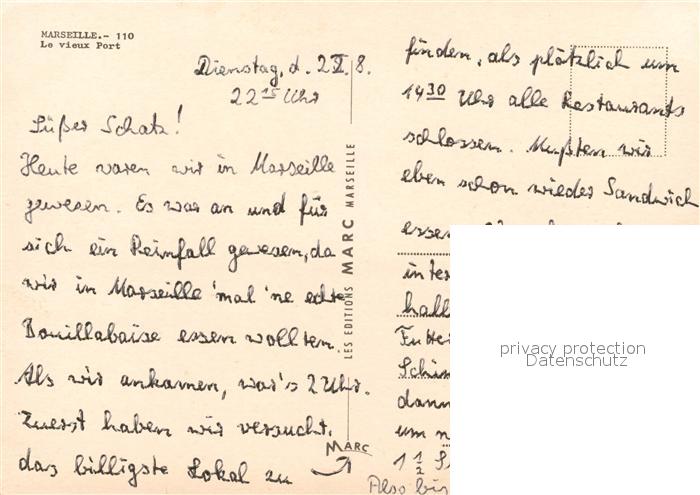 MARSEILLE.- 110
Le vieux Port
Dienstag, d. 2.8.
22 15 Uhr
Süßer Schatz!
Heute waren wir in Marseille
gewesen. Es war an und für
sich ein Reinfall gewesen, da
wir in Marseille 'mal 'ne echte
Bouillabaise essen wollten.
Als wir ankamen, war's 2 Uhr.
Zuerst haben wir versucht,
das billigste Lokal zu
MARC
LES EDITIONS MARC MARSEILLE
finden, als plötzlich um
14 30 Uhr alle Restaurants
schlossen. Mußten wir
eben schon wieder Sandwich
essen
inter
hall
Futter
Schin
dann
um n
1 1/2 S
Also bis
privacy protection
Datenschutz